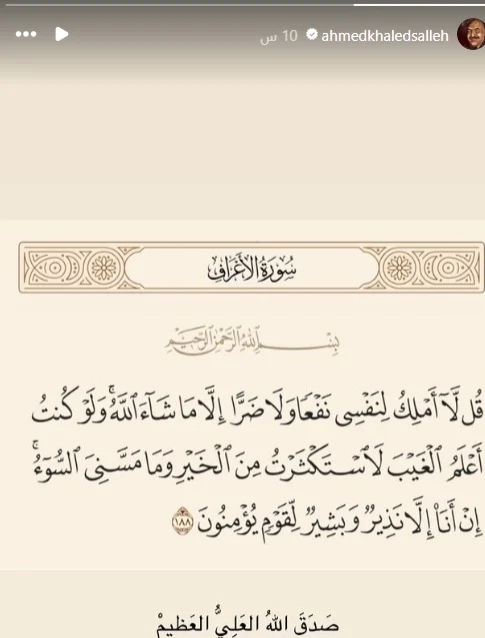 ahmedkhaledsalleh 10 س
سُورَةُ الأَعْرَافِ
بِسْمِ ٱللَّهِ ٱلرَّحْمَٰنِ ٱلرَّحِيمِ
قُل لَّآ أَمْلِكُ لِنَفْسِى نَفْعًا وَلَا ضَرًّا إِلَّا مَا شَآءَ ٱللَّهُ ۚ وَلَوْ كُنتُ
أَعْلَمُ ٱلْغَيْبَ لَٱسْتَكْثَرْتُ مِنَ ٱلْخَيْرِ وَمَا مَسَّنِىَ ٱلسُّوٓءُ ۚ
إِنْ أَنَا۠ إِلَّا نَذِيرٌ وَبَشِيرٌ لِّقَوْمٍ يُؤْمِنُونَ ١٨٨
صَدَقَ اللهُ العَلِيُّ العَظِيمْ